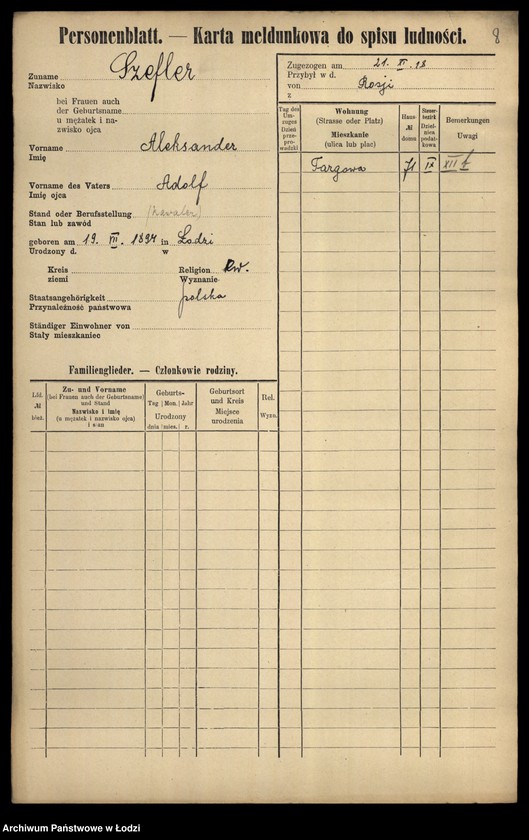 Personenblatt. — Karta meldunkowa do spisu ludności.
8
Zuname Szefler
Nazwisko
bei Frauen auch
der Geburtsname
u mężatek i na-
zwisko ojca
Vorname Aleksander
Imię
Vorname des Vaters Adolf
Imię ojca
Stand oder Berufsstellung (kawaler)
Stan lub zawód
geboren am 19. VII. 1894 in Łodzi
Urodzony d. w
Kreis Religion
ziemi Wyznanie
Staatsangehörigkeit polska
Przynależność państwowa
Ständiger Einwohner von
Stały mieszkaniec
Familienglieder. — Członkowie rodziny.
Lfd. № bież.
Zu- und Vorname
(bei Frauen auch der Geburtsname)
und Stand
Nazwisko i imię
(u mężatek i nazwisko ojca)
i stan
Geburts-
Tag Mon. Jahr
Urodzony
dnia mies. r.
Geburtsort
und Kreis
Miejsce
urodzenia
Rel.
Wyzn.
Zugezogen am 21. XI. 18
Przybył w d.
von Rosji
z
Tag des
Um-
zuges
Dzień
prze-
prowadzki
Wohnung
(Strasse oder Platz)
Mieszkanie
(ulica lub plac)
Haus-
№
domu
Steuer-
bezirk
Dziel-
nica
podat-
kowa
Bemerkungen
Uwagi
Targowa 71 IX XII
Archiwum Państwowe w Łodzi